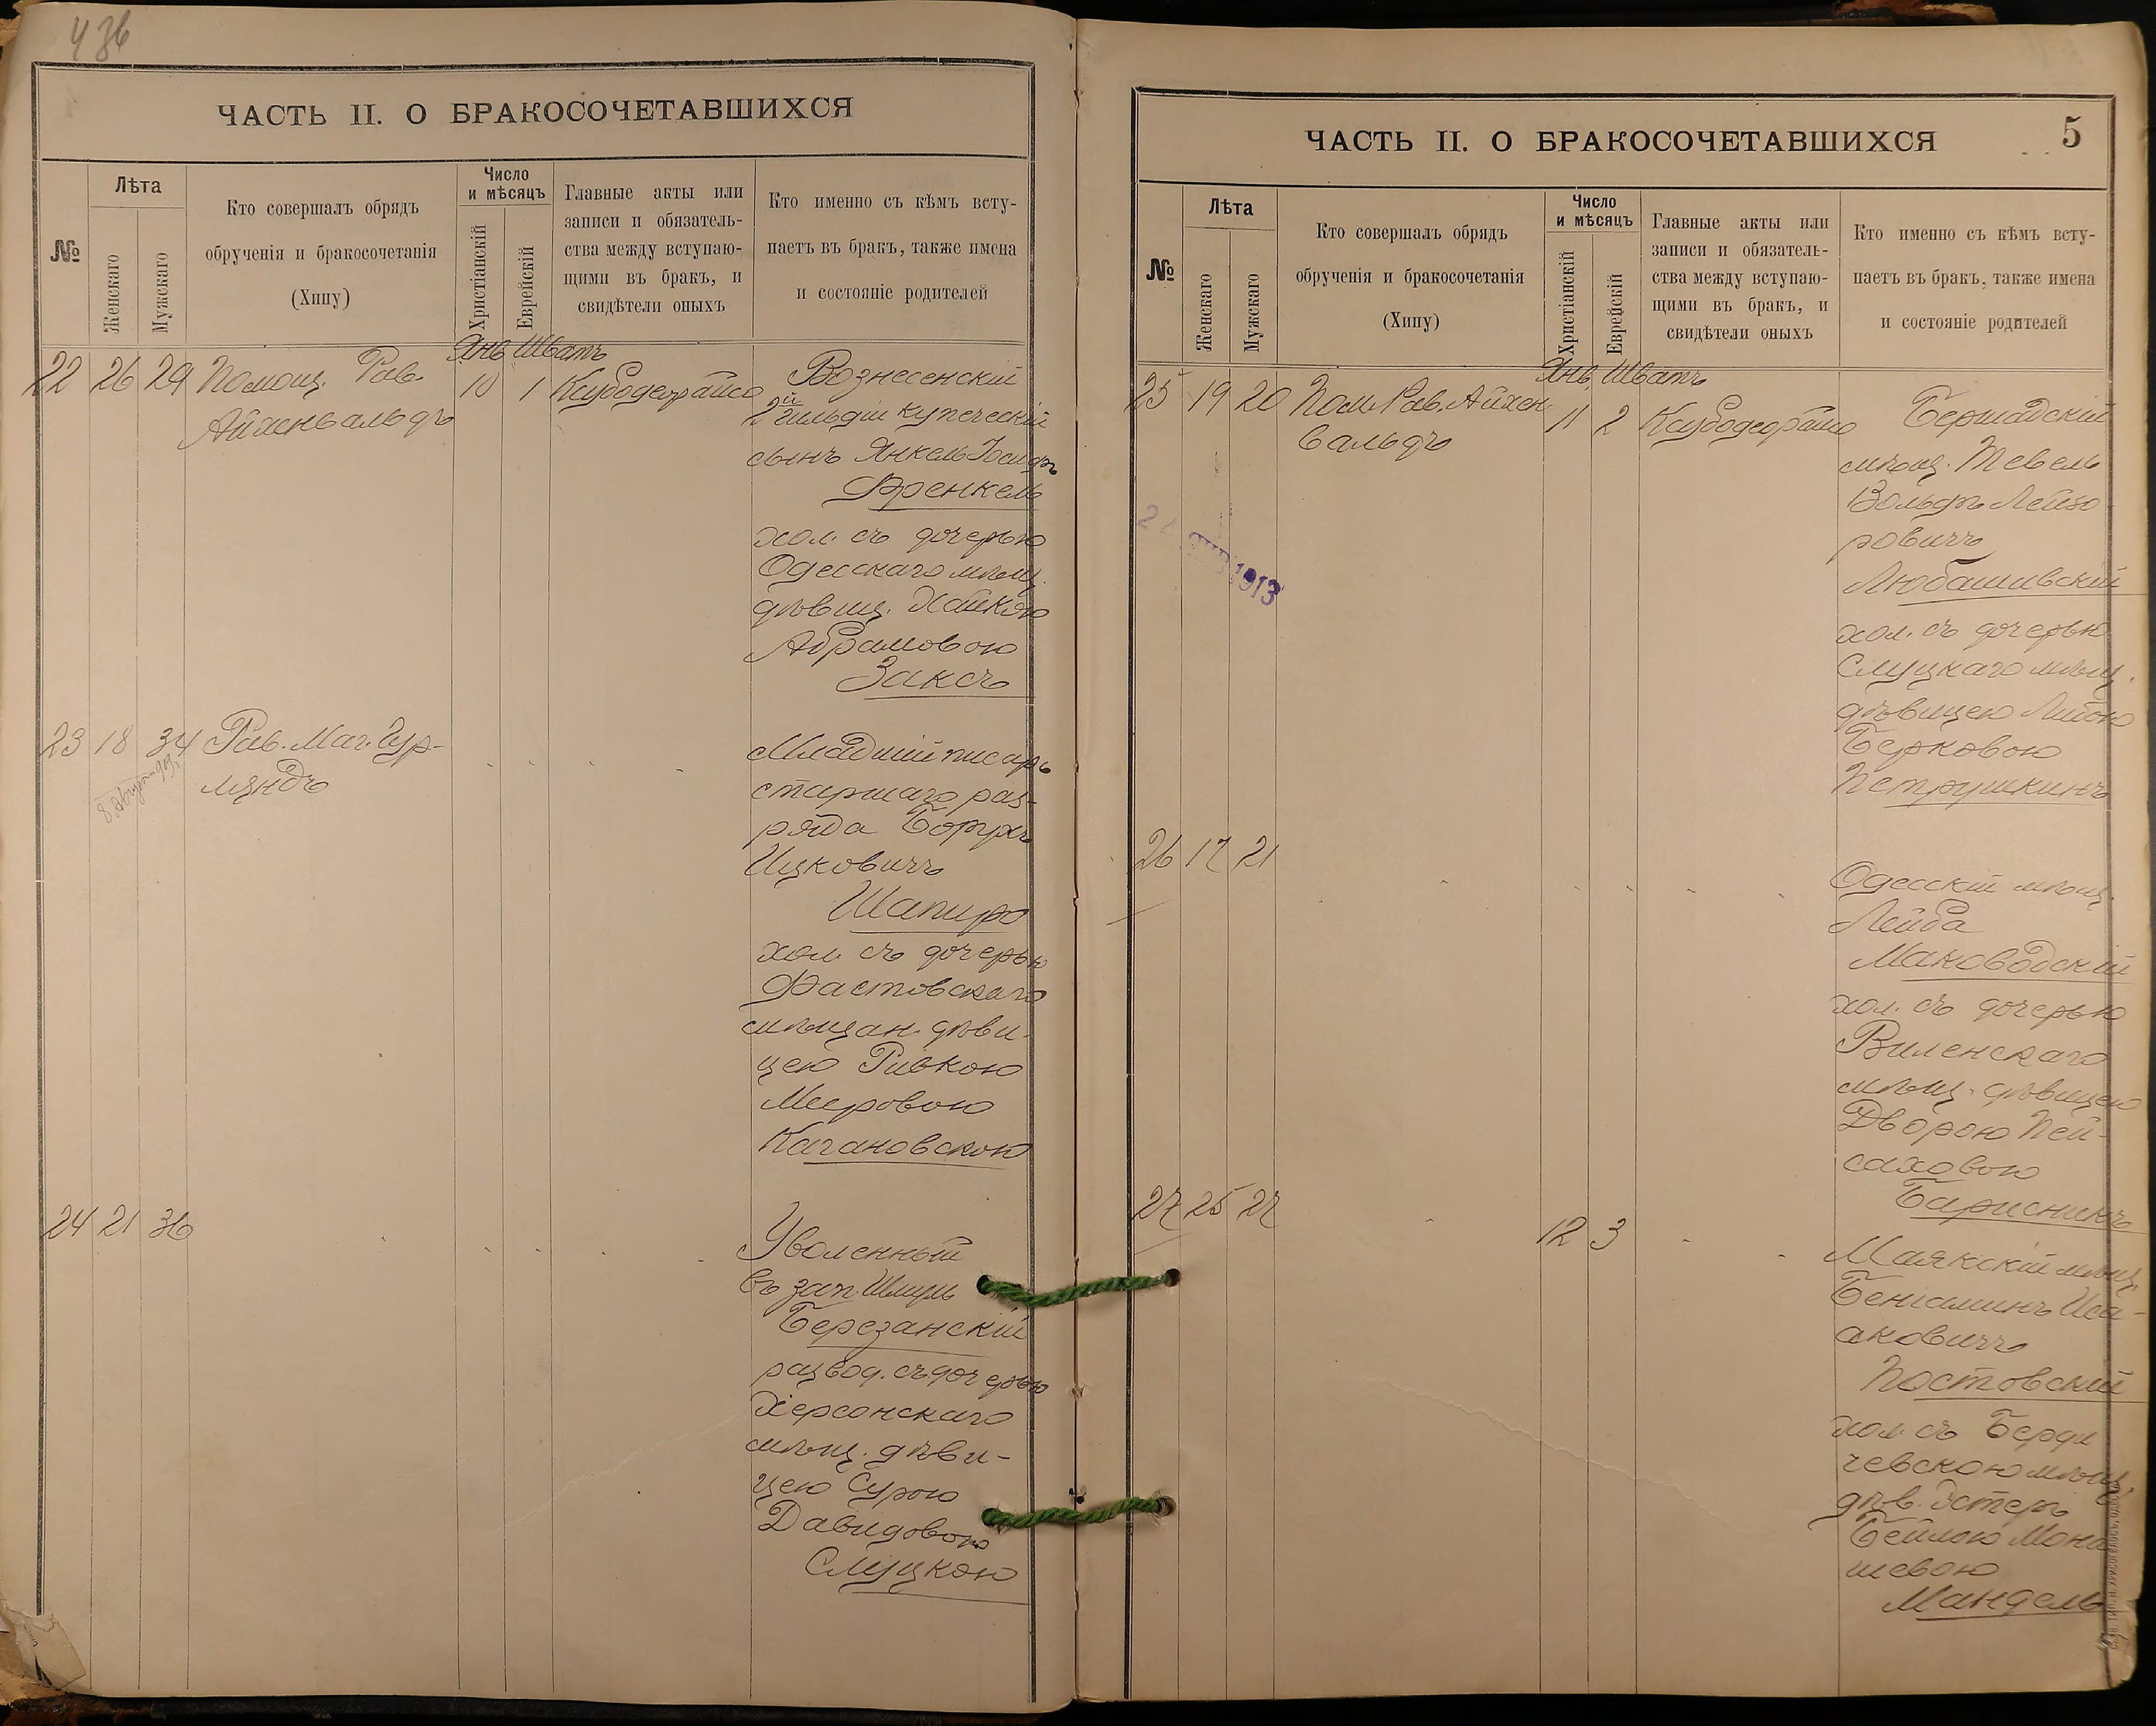 436
ЧАСТЬ II. О БРАКОСОЧЕТАВШИХСЯ
№
Лѣта
Женскаго
Мужскаго
Кто совершалъ обрядъ
обрученія и бракосочетанія
(Хипу)
Число
и мѣсяцъ
Христіанскій
Еврейскій
Главные акты или
записи и обязатель-
ства между вступаю-
щими въ бракъ, и
свидѣтели оныхъ
Кто именно съ кѣмъ всту-
паетъ въ бракъ, также имена
и состояніе родителей
Янв. Шватъ
22 26 29 Помощ. Рав. 10 1
Айхенвальдъ
Вознесенскій
2й гильдіи купеческій
сынъ Янкель Іосифъ
Френкель
хол. съ дочерью
Одесскаго мѣщ.
дѣвиц. Хайкою
Абрамовою
Заксъ
23 18 34 Рав. Маг. Гур-
ляндъ
Младшій писарь
старшаго раз-
ряда Борухъ
Ицковичъ
Шапиро
хол. съ дочерью
Фастовскаго
мѣщан. дѣви-
цею Ривкою
Мееровою
Кагановскою
24 21 36
Уволенный
въ зап. Шмуль
Березанскій
развод. съ дочерью
Херсонскаго
мѣщ. дѣви-
цею Сурою
Давидовою
Слуцкою
ЧАСТЬ II. О БРАКОСОЧЕТАВШИХСЯ
5
№
Лѣта
Женскаго
Мужскаго
Кто совершалъ обрядъ
обрученія и бракосочетанія
(Хипу)
Число
и мѣсяцъ
Христіанскій
Еврейскій
Главные акты или
записи и обязатель-
ства между вступаю-
щими въ бракъ, и
свидѣтели оныхъ
Кто именно съ кѣмъ всту-
паетъ въ бракъ, также имена
и состояніе родителей
Янв. Шватъ
25 19 20 Пом. Рав. Айхен- 11 2
вальдъ
1913
Бершадскій
мѣщ. Тевель
Вольфъ Лейзо-
ровичъ
Любашивскій
хол. съ дочерью
Слуцкаго мѣщ.
дѣвицею Либою
Берковою
Петрушкинъ
26 17 21
Одесскій мѣщ.
Лейба
Маководскій
хол. съ дочерью
Виленскаго
мѣщ. дѣвицею
Дворою Пей-
саховою
Барисникъ
27 25 27 12 3
Маякскій мѣщ.
Беніаминъ Иса-
аковичъ
Постовскій
хол. съ Берди
чевскою мѣщ.
дѣв. Эстеръ
Бейлою Мона
шевою
Мандель